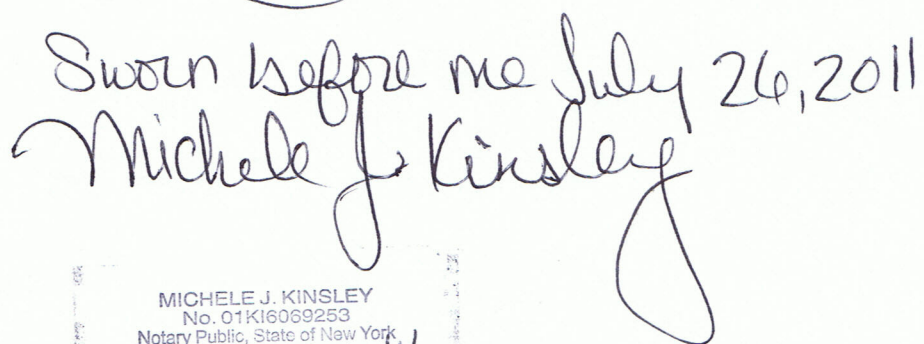 Sworn before me July 26, 2011
Michele J. Kinsley
MICHELE J. KINSLEY
No. 01KI6069253
Notary Public, State of New York